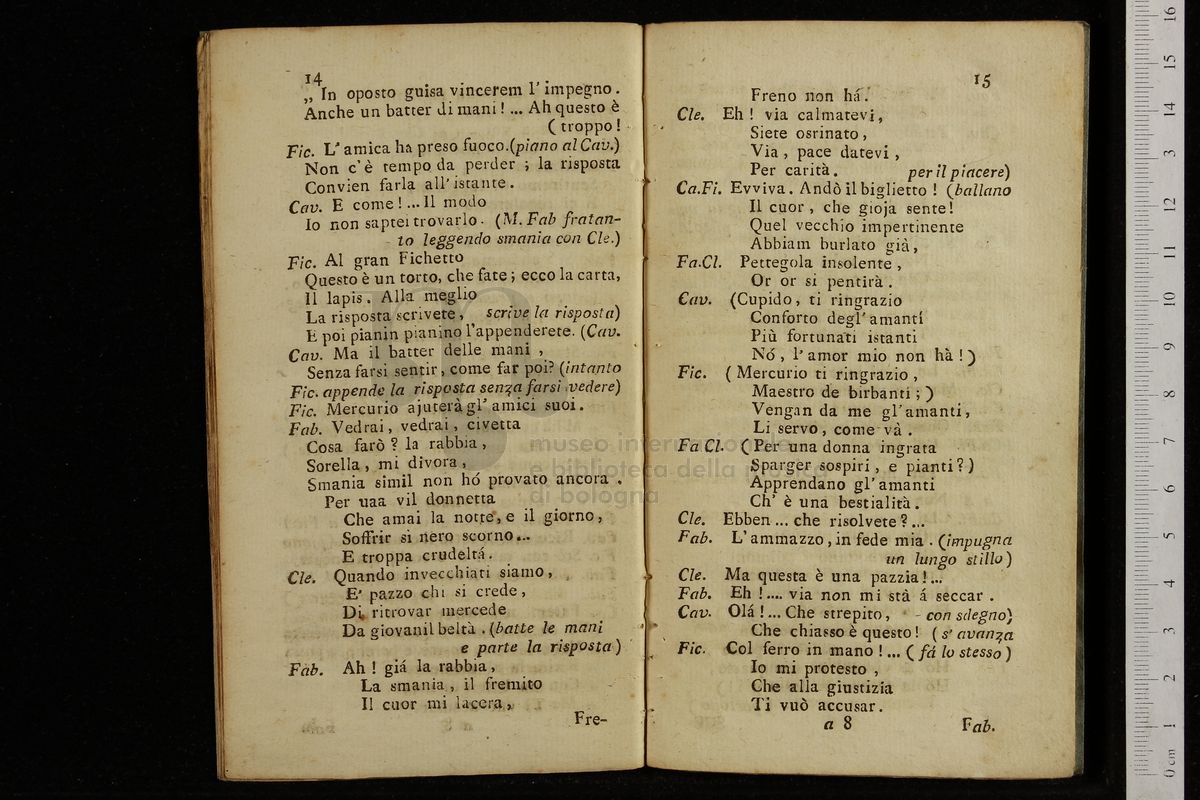 14
„ In oposto guisa vincerem l' impegno.
Anche un batter di mani! ... Ah questo è
( troppo!
Fic. L' amica ha preso fuoco.(piano al Cav.)
Non c' è tempo da perder ; la risposta
Convien farla all' istante.
Cav. E come! ... Il modo
Io non saprei trovarlo. (M. Fab fratan-
to leggendo smania con Cle.)
Fic. Al gran Fichetto
Questo è un torto, che fate; ecco la carta,
Il lapis. Alla meglio
La risposta scrivete, scrive la risposta)
E poi pianin pianino l'appenderete. (Cav.
Cav. Ma il batter delle mani ,
Senza farsi sentir, come far poi? (intanto
Fic. appende la risposta senza farsi vedere)
Fic. Mercurio ajuterà gl' amici suoi.
Fab. Vedrai, vedrai, civetta
Cosa farò ? la rabbia,
Sorella, mi divora,
Smania simil non hó provato ancora .
Per uaa vil donnetta
Che amai la notte, e il giorno,
Soffrir si nero scorno...
E troppa crudeltá.
Cle. Quando invecchiati siamo,
E' pazzo chi si crede,
Di ritrovar mercede
Da giovanil beltà . (batte le mani
e parte la risposta)
Fab. Ah ! giá la rabbia,
La smania , il fremito
Il cuor mi lacera,
Fre-
15
Freno non há.
Cle. Eh ! via calmatevi,
Siete osrinato,
Via, pace datevi ,
Per carità. per il piacere)
Ca.Fi. Evviva. Andò il biglietto ! (ballano
Il cuor , che gioja sente!
Quel vecchio impertinente
Abbiam burlato già,
Fa.Cl. Pettegola insolente ,
Or or si pentirà .
Cav. (Cupido, ti ringrazio
Conforto degl' amanti
Più fortunati istanti
Nó , l' amor mio non hà ! )
Fic. ( Mercurio ti ringrazio ,
Maestro de birbanti ; )
Vengan da me gl' amanti,
Li servo , come và .
Fa Cl. ( Per una donna ingrata
Sparger sospiri, e pianti? )
Apprendano gl' amanti
Ch' è una bestialità.
Cle. Ebben ... che risolvete ? ...
Fab. L' ammazzo , in fede mia . (impugna
un lungo stillo )
Cle. Ma questa è una pazzia! ...
Fab. Eh ! .... via non mi stà á seccar .
Cav. Olá ! ... Che strepito, - con sdegno)
Che chiasso è questo! ( s' avanza
Fic. Col ferro in mano ! ... ( fá lo stesso )
Io mi protesto ,
Che alla giustizia
Ti vuò accusar.
a 8 Fab.
museo internazionale
e biblioteca della musica
di bologna
0 cm 1 2 3 4 5 6 7 8 9 10 11 12 13 14 15 16